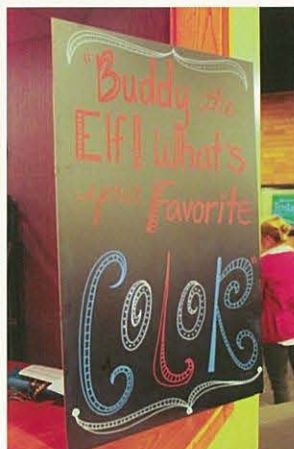 "Buddy the
Elf! What's
your Favorite
Color"